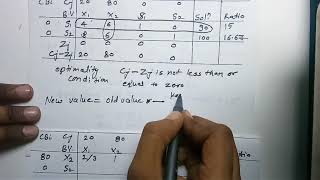 CBi Cj 20 80 0 0
BV X1 X2 S1 S2 Solⁿ Ratio
0 S1 4 6 90 15
0 S2 8 6 100 16.67
Zj 0 0 0 0
Cj-Zj 20 80 0 0
optimality Cj-Zj is not less than or
condition equal to zero
New value = old value
CBi Cj 20 80
BV X1 X2
80 X2 2/3 1
0 S2